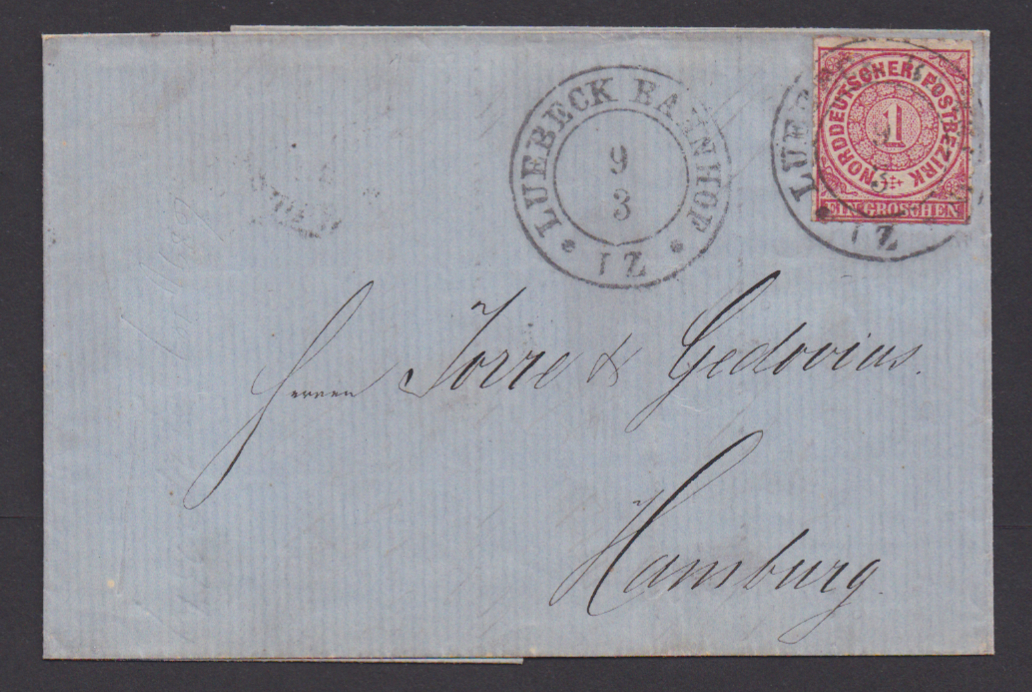 LUEBECK BAHNHOF
9
3
I Z
NORDDEUTSCHER POSTBEZIRK
1
EIN GROSCHEN
LUE
9
3
I Z
Herren Jorre & Gedovius.
Hamburg.